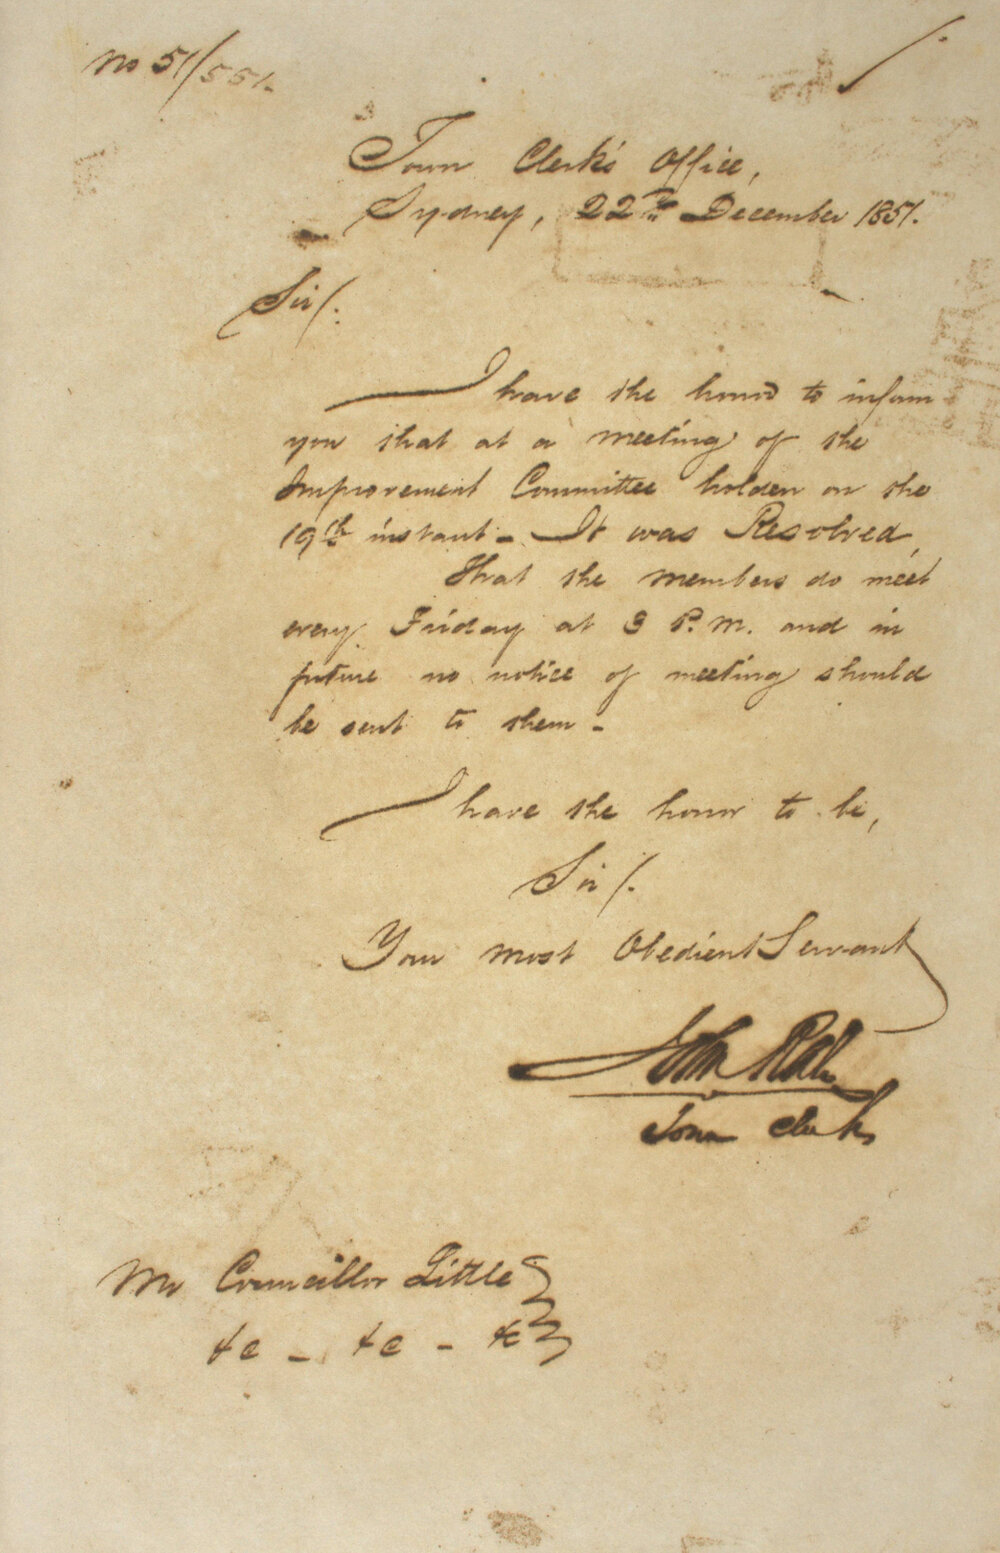 No 51/551.
Town Clerk's Office,
Sydney, 22nd December 1851.
Sir/.
I have the honor to inform
you that at a meeting of the
Improvement Committee holden on the
19th instant - It was Resolved,
That the members do meet
every Friday at 3 P.M. and in
future no notice of meeting should
be sent to them -
I have the honor to be,
Sir/.
Your most Obedient Servant
John Rae
Town Clerk
Mr Councillor Little
&c - &c - &c